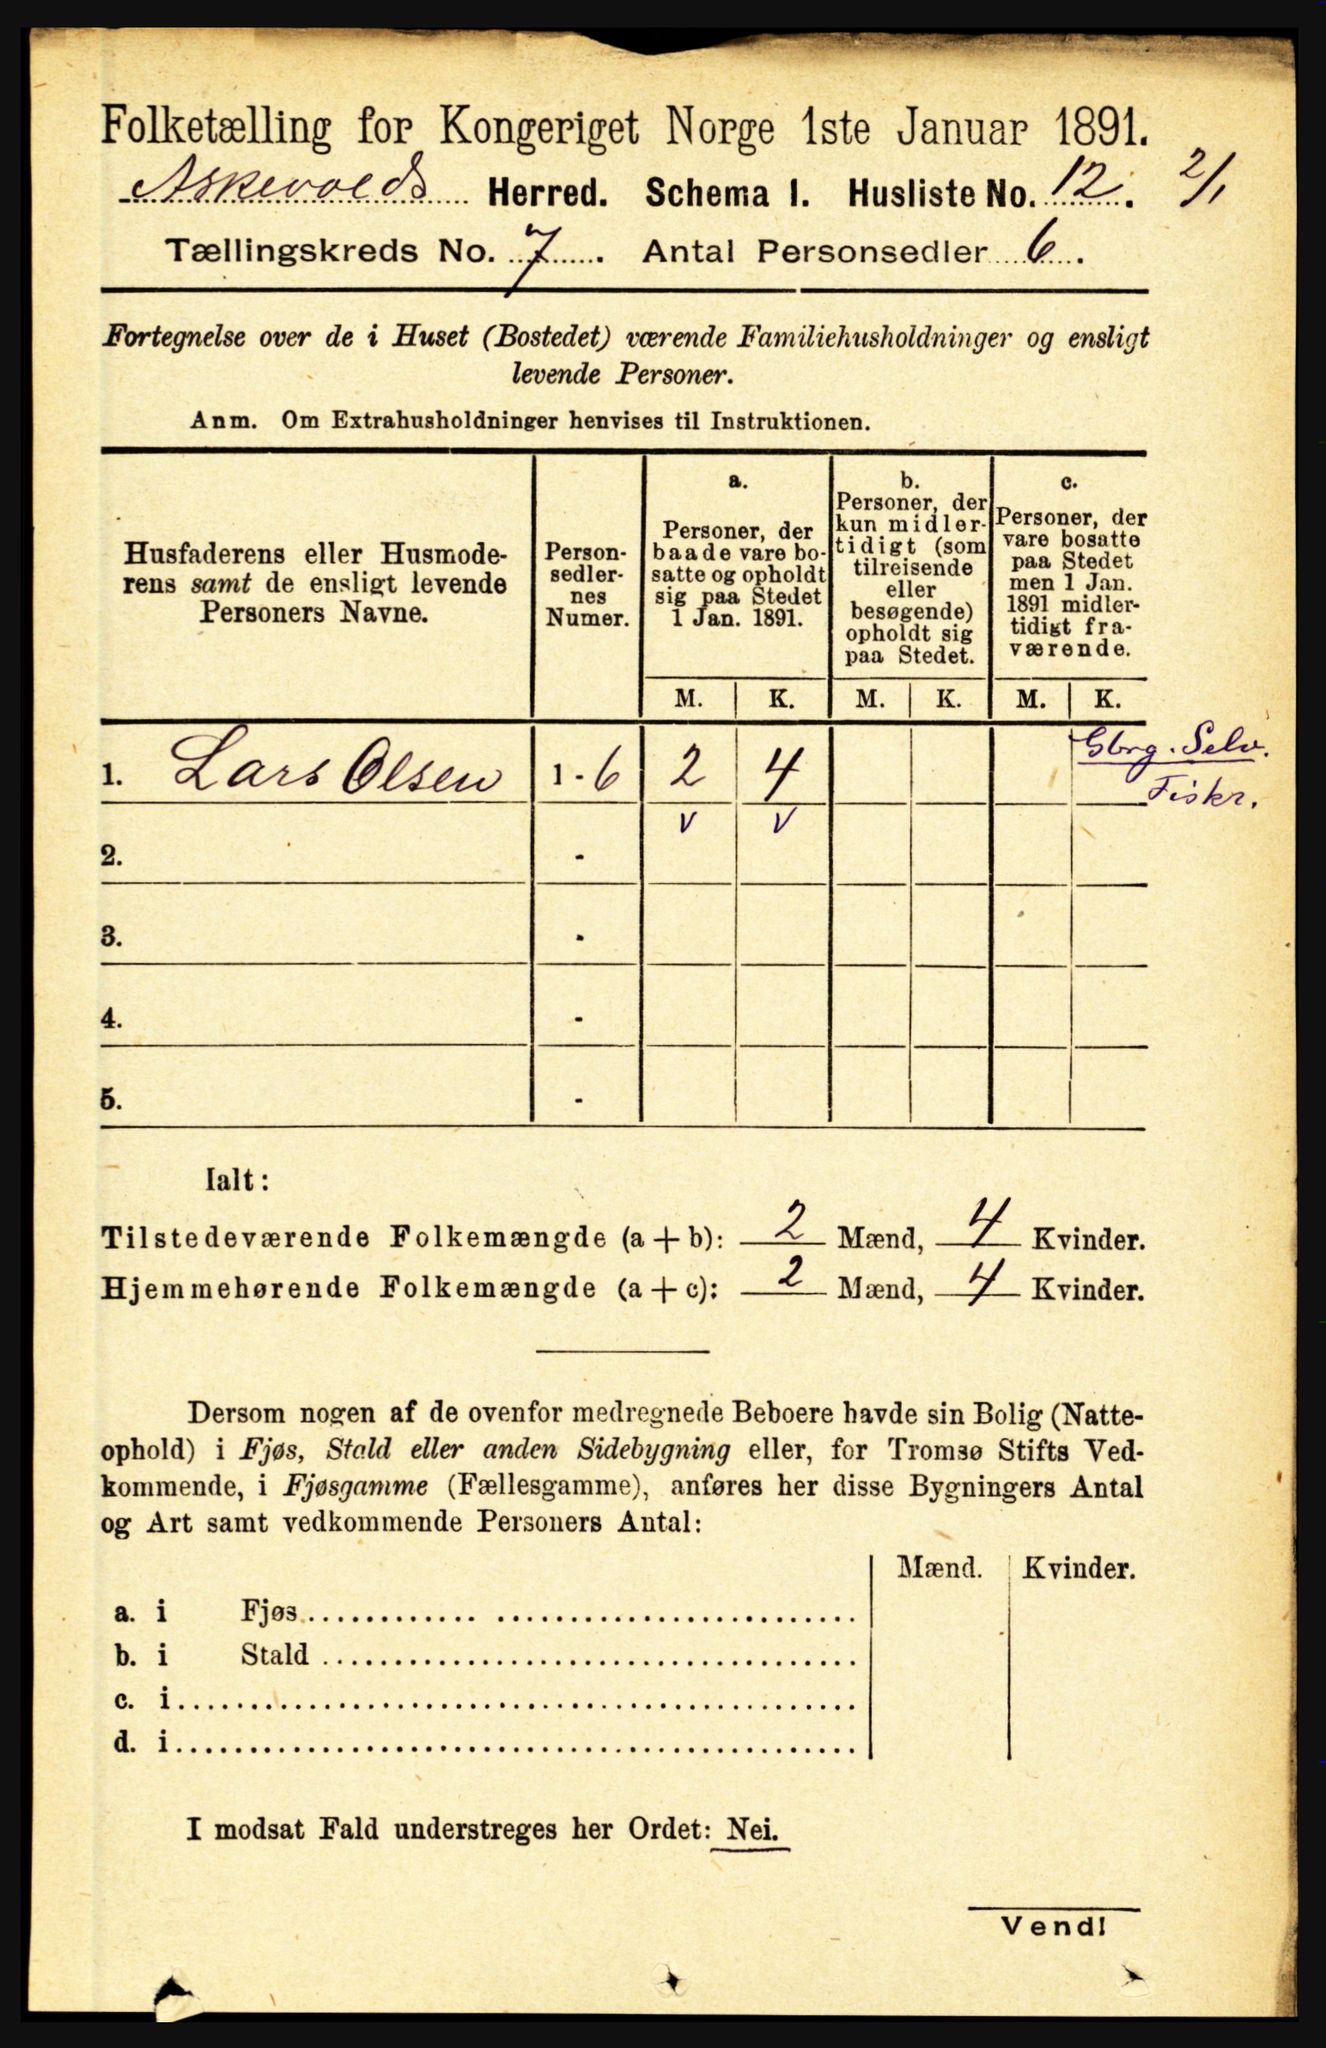 Folketælling for Kongeriget Norge 1ste Januar 1891.
Askevolds Herred. Schema I. Husliste No. 12. 2/1
Tællingskreds No. 7. Antal Personsedler 6.
Fortegnelse over de i Huset (Bostedet) værende Familiehusholdninger og ensligt
levende Personer.
Anm. Om Extrahusholdninger henvises til Instruktionen.
Husfaderens eller Husmode-
rens samt de ensligt levende
Personers Navne.
Person-
sedler-
nes
Numer.
a.
Personer, der
baade vare bo-
satte og opholdt
sig paa Stedet
1 Jan. 1891.
b.
Personer, der
kun midler-
tidigt (som
tilreisende
eller
besøgende)
opholdt sig
paa Stedet.
c.
Personer, der
vare bosatte
paa Stedet
men 1 Jan.
1891 midler-
tidigt fra-
værende.
M. K. M. K. M. K.
1. Lars Olsen 1 - 6 2 4 Gbrg. Selv.
Fiskr.
v v
2. -
3. -
4. -
5. -
Ialt:
Tilstedeværende Folkemængde (a + b): 2 Mænd, 4 Kvinder.
Hjemmehørende Folkemængde (a + c): 2 Mænd, 4 Kvinder.
Dersom nogen af de ovenfor medregnede Beboere havde sin Bolig (Natte-
ophold) i Fjøs, Stald eller anden Sidebygning eller, for Tromsø Stifts Ved-
kommende, i Fjøsgamme (Fællesgamme), anføres her disse Bygningers Antal
og Art samt vedkommende Personers Antal:
Mænd. Kvinder.
a. i Fjøs
b. i Stald
c. i
d. i
I modsat Fald understreges her Ordet: Nei.
Vend!